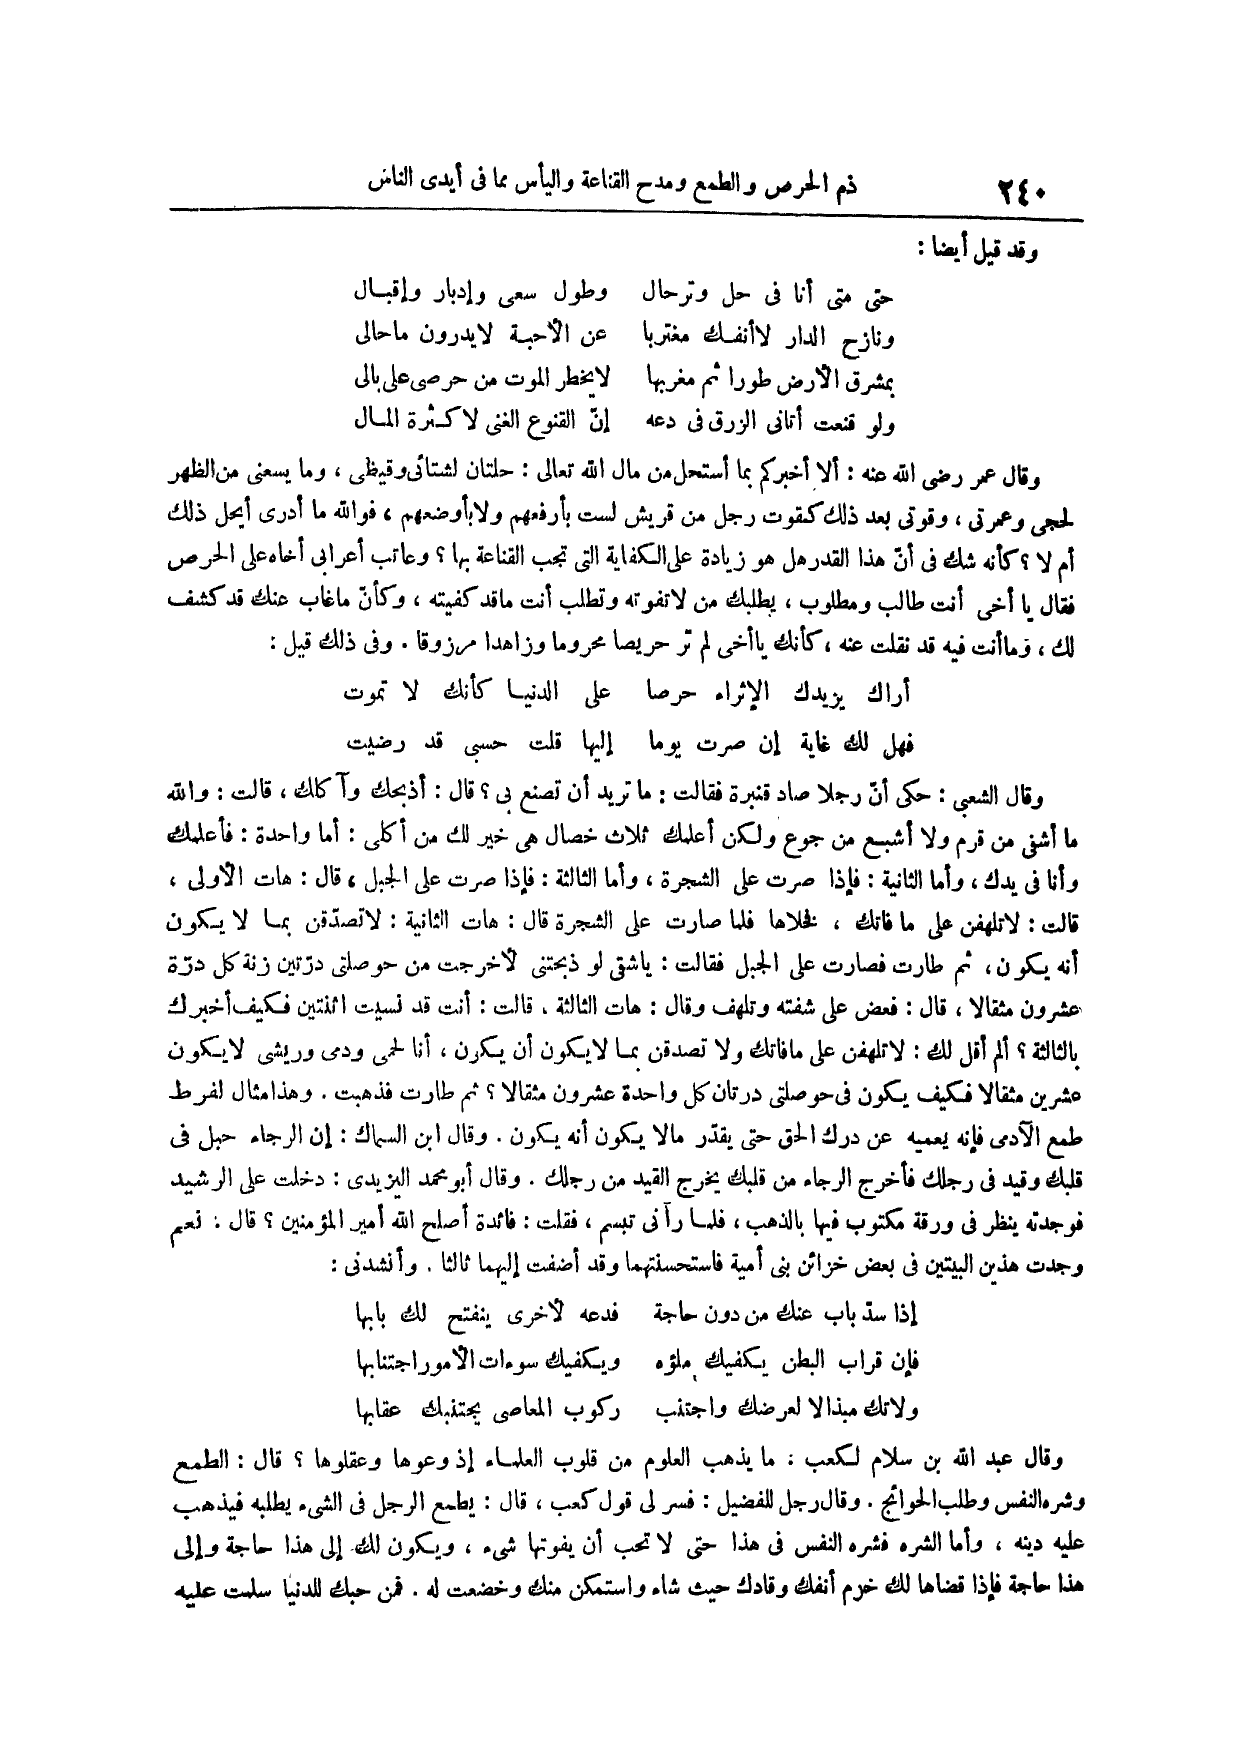 ٢٤٠ ذم الحرص والطمع ومدح القناعة واليأس مما فى أيدى الناس
وقد قيل أيضا :
حتى متى أنا فى حل وترحال وطول سعى وإدبار وإقبال
ونازح الدار لاأنفك مغتربا عن الأحبة لايدرون ماحالى
بمشرق الأرض طورا ثم مغربها لايخطر الموت من حرصى على بالى
ولو قنعت أتانى الرزق فى دعه إنّ القنوع الغنى لاكثرة المال
وقال عمر رضى الله عنه : ألا أخبركم بما أستحل من مال الله تعالى : حلتان لشتائى وقيظى ، وما يسعنى من الظهر
لحجى وعمرتى ، وقوتى بعد ذلك كقوت رجل من قريش لست بأرفعهم ولا بأوضعهم ، فوالله ما أدرى أيحل ذلك
أم لا ؟ كأنه شك فى أنّ هذا القدر هل هو زيادة على الكفاية التى تجب القناعة بها ؟ وعاتب أعرابى أخاه على الحرص
فقال يا أخى أنت طالب ومطلوب ، يطلبك من لاتفوته وتطلب أنت ماقد كفيته ، وكأنّ ماغاب عنك قد كشف
لك ، وماأنت فيه قد نقلت عنه ، كأنك ياأخى لم تر حريصا محروما وزاهدا مرزوقا . وفى ذلك قيل :
أراك يزيدك الإثراء حرصا على الدنيا كأنك لا تموت
فهل لك غاية إن صرت يوما إليها قلت حسبى قد رضيت
وقال الشعبى : حكى أنّ رجلا صاد قنبرة فقالت : ما تريد أن تصنع بى ؟ قال : أذبحك وآكلك ، قالت : والله
ما أشفى من قرم ولا أشبع من جوع ولكن أعلمك ثلاث خصال هى خير لك من أكلى : أما واحدة : فأعلمك
وأنا فى يدك ، وأما الثانية : فإذا صرت على الشجرة ، وأما الثالثة : فإذا صرت على الجبل ، قال : هات الأولى ،
قالت : لاتلهفن على ما فاتك ، فخلاها فلما صارت على الشجرة قال : هات الثانية : لاتصدّقن بما لا يكون
أنه يكون ، ثم طارت فصارت على الجبل فقالت : ياشقى لو ذبحتنى لأخرجت من حوصلتى درّتين زنة كل درّة
عشرون مثقالا ، قال : فعض على شفته وتلهف وقال : هات الثالثة ، قالت : أنت قد نسيت اثنتين فكيف أخبرك
بالثالثة ؟ ألم أقل لك : لاتلهفن على مافاتك ولا تصدقن بما لايكون أن يكون ، أنا لحمى ودمى وريشى لايكون
عشرين مثقالا فكيف يكون فى حوصلتى درتان كل واحدة عشرون مثقالا ؟ ثم طارت فذهبت . وهذا مثال لفرط
طمع الآدمى فإنه يعميه عن درك الحق حتى يقدّر مالا يكون أنه يكون . وقال ابن السماك : إن الرجاء حبل فى
قلبك وقيد فى رجلك فأخرج الرجاء من قلبك يخرج القيد من رجلك . وقال أبو محمد اليزيدى : دخلت على الرشيد
فوجدته ينظر فى ورقة مكتوب فيها بالذهب ، فلما رآنى تبسم ، فقلت : فائدة أصلح الله أمير المؤمنين ؟ قال : نعم
وجدت هذين البيتين فى بعض خزائن بنى أمية فاستحسنتهما وقد أضفت إليهما ثالثا . وأنشدنى :
إذا سدّ باب عنك من دون حاجة فدعه لأخرى ينفتح لك بابها
فإن قراب البطن يكفيك ملؤه ويكفيك سوءات الأمور اجتنابها
ولاتك مبذالا لعرضك واجتنب ركوب المعاصى يجتنبك عقابها
وقال عبد الله بن سلام لكعب : ما يذهب العلوم من قلوب العلماء إذ وعوها وعقلوها ؟ قال : الطمع
وشره النفس وطلب الحوائج . وقال رجل للفضيل : فسر لى قول كعب ، قال : يطمع الرجل فى الشىء يطلبه فيذهب
عليه دينه ، وأما الشره فشره النفس فى هذا حتى لا تحب أن يفوتها شىء ، ويكون لك إلى هذا حاجة وإلى
هذا حاجة فإذا قضاها لك خرم أنفك وقادك حيث شاء واستمكن منك وخضعت له . فمن حبك للدنيا سلمت عليه